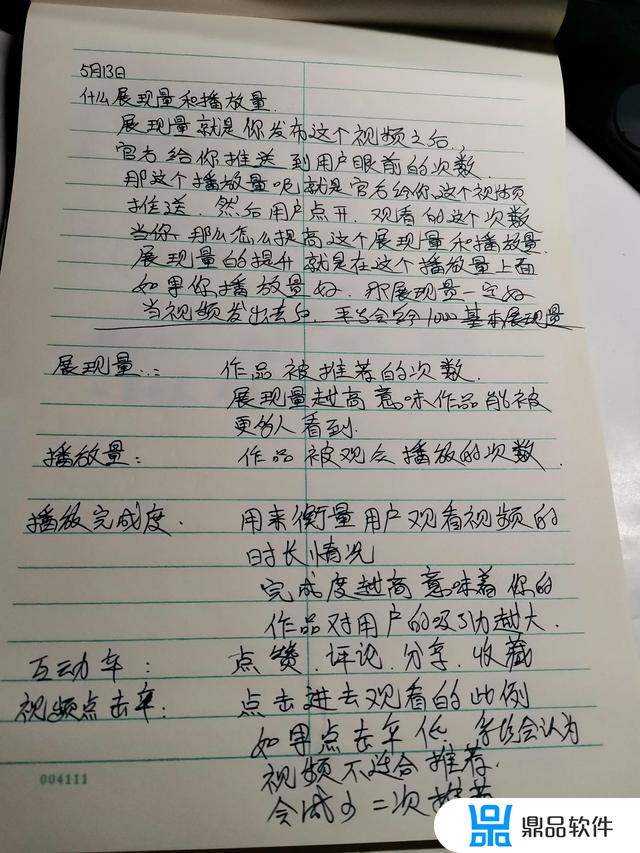 5月13日
什么展现量和播放量.
展现量就是你发布这个视频之后,
官方给你推送到用户眼前的次数.
那这个播放量呢就是官方给你这个视频
推送.然后用户点开.观看的这个次数
当你 那么怎么提高这个展现量和播放量.
展现量的提升就是在这个播放量上面
如果你播放量好.那展现量一定好
当视频发出去后. 1000基本展现量
展现量: 作品被推荐的次数.
展现量越高意味作品能被
更多人看到.
播放量: 作品被观众播放的次数.
播放完成度. 用来衡量用户观看视频的
时长情况
完成度越高意味着你的
作品对用户的吸引力越大.
互动率: 点赞.评论.分享.收藏
视频点击率: 点击进去观看的比例
如果点击率低. 会认为
视频不适合推荐.
会减少二次推荐
004111
鼎品软件